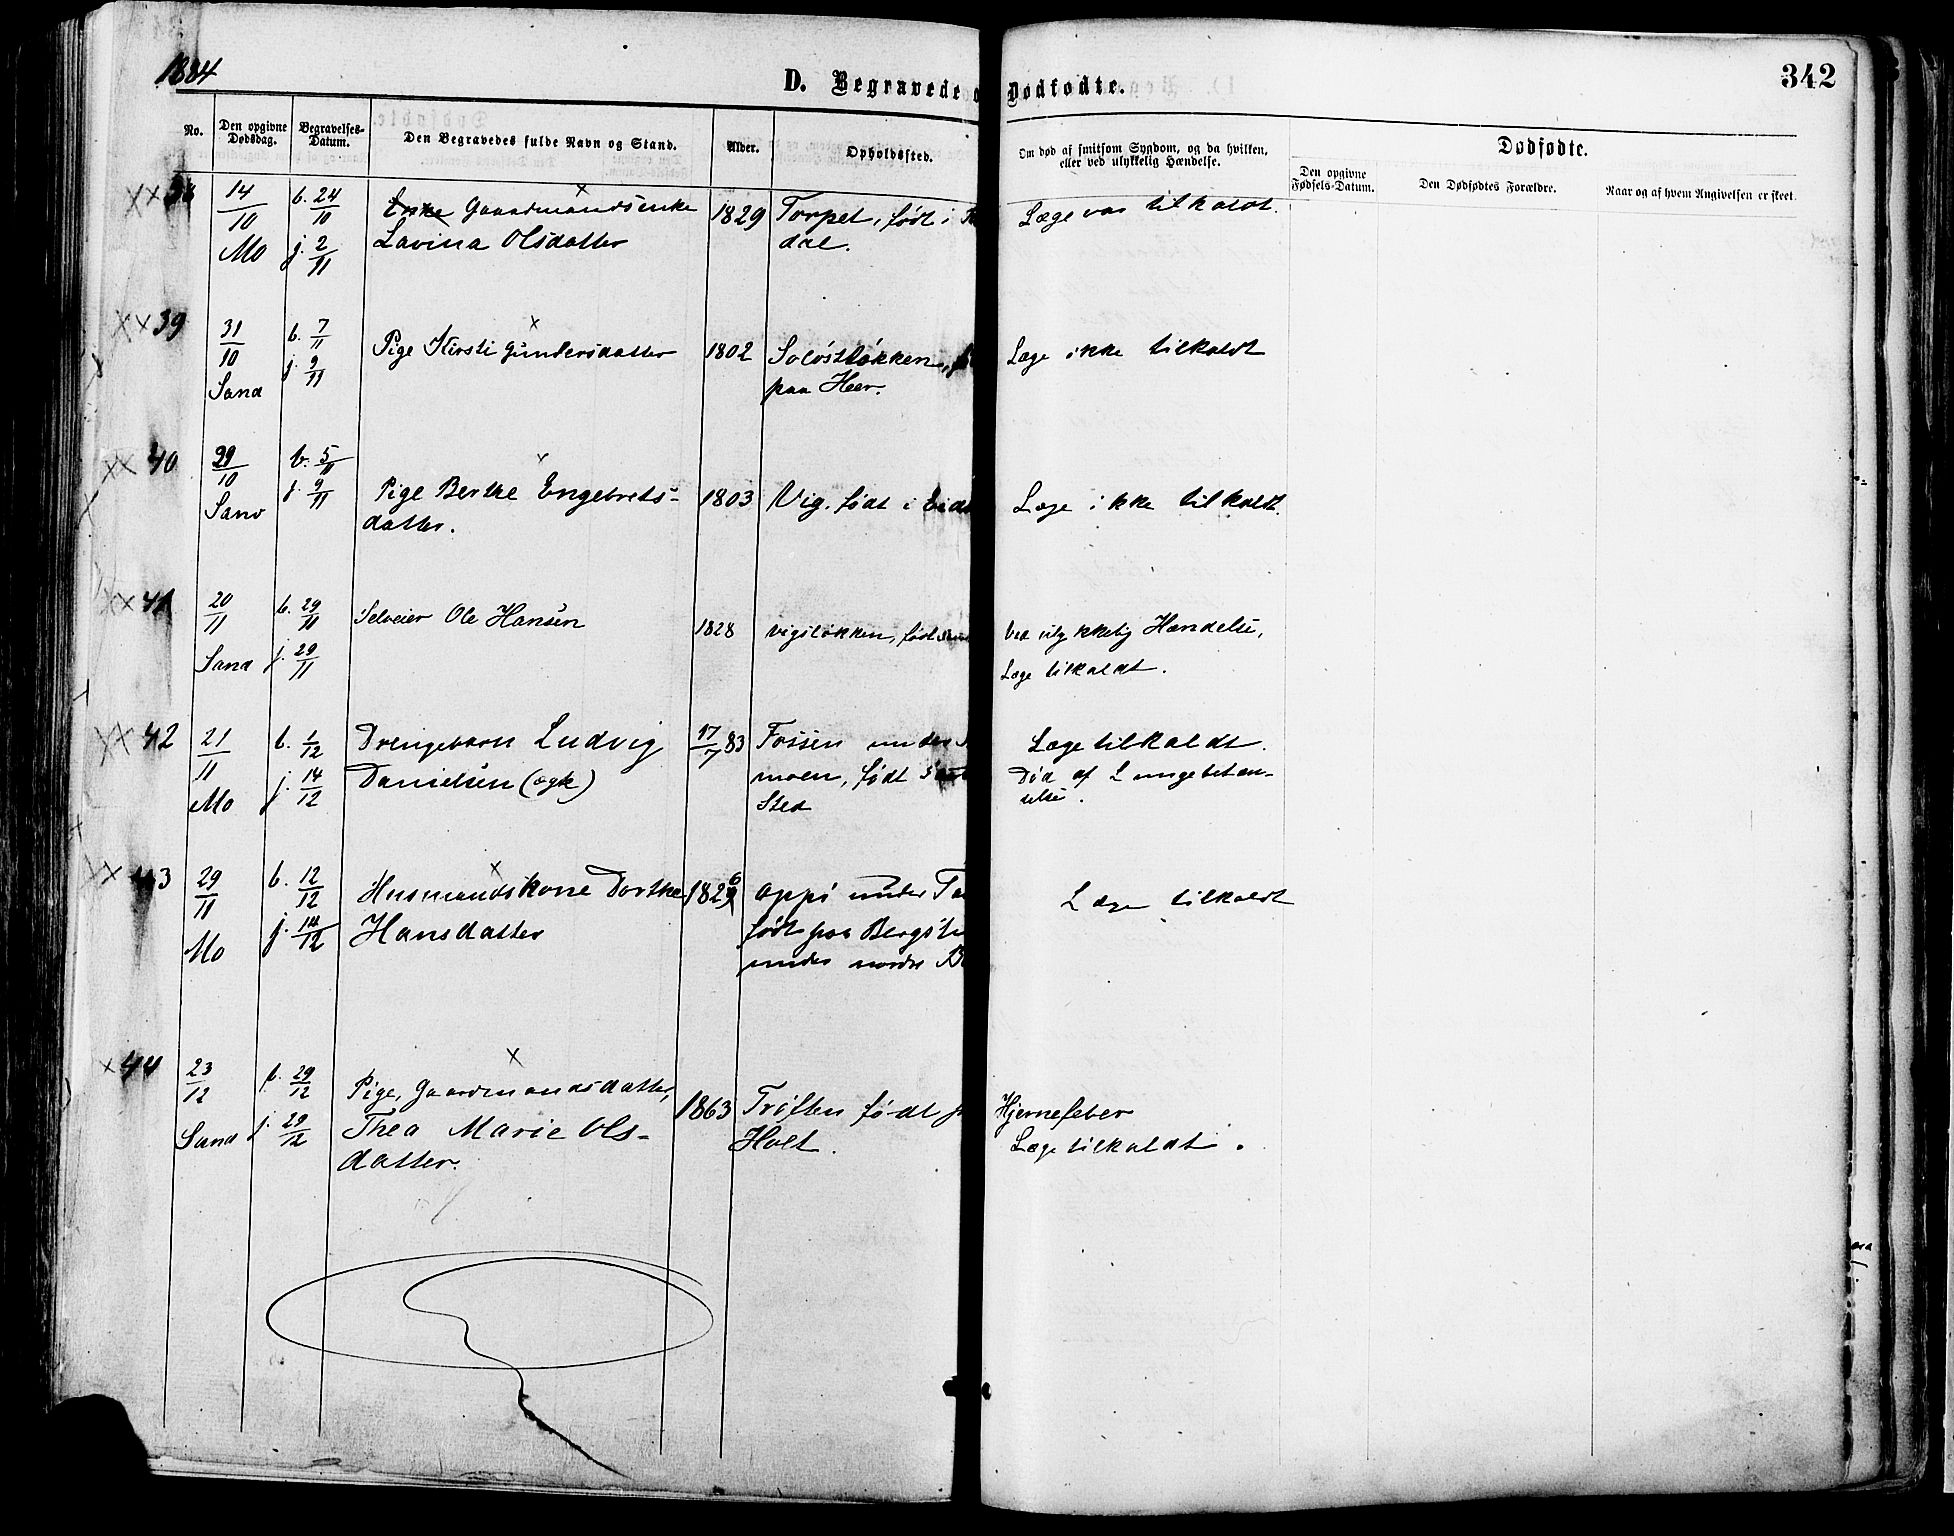 1884
D. Begravede o
Dødfødte.
342
No.
Den opgivne Dødsdag.
Begravelses-Datum.
Den Begravedes fulde Navn og Stand.
Alder.
Opholdssted.
Om død af smitsom Sygdom, og da hvilken,
eller ved ulykkelig Hændelse.
Dødfødte.
Den opgivne
Fødsels-Datum.
Den Dødfødtes Forældre.
Naar og af hvem Angivelsen er skeet.
14/10 b. 24/10 Gaardmandsenke 1829 Torpet, født i
Mo j. 2/11 Lavina Olsdatter dal.
Læge var tilkaldt.
39 31/10 b. 7/11 Pige Kirsti Gundersdatter 1802 Soløstløkken,
Sand j. 9/11 paa Heer.
Læge ikke tilkaldt
40 29/10 b. 5/11 Pige Berthe Engebrets- 1803 Vig. født i Eids
Sand j. 9/11 datter.
Læge ikke tilkaldt.
41 20/11 b. 29/11 Selveier Ole Hansen 1828 Vigsløkken, født
Sand j. 29/11
Ved ulykkelig Hændelse,
Læge tilkaldt.
42 21/11 b. 1/12 Drengebarn Ludvig 17/7 83 Fossen under
Mo j. 14/12 Danielsen (ægte) moen, født
Sted
Læge tilkaldt.
Død af Lungebetæn-
delse.
43 29/11 b. 12/12 Husmandskone Dorthe 1826 oppi under
Mo j. 14/12 Hansdatter født paa
under nordre
Læge tilkaldt
44 23/12 b. 29/12 Pige, Gaardmandsdatter, 1863 Trøften født
Sand j. 29/12 Thea Marie Ols- Holt.
datter.
Hjernefeber
Læge tilkaldt.